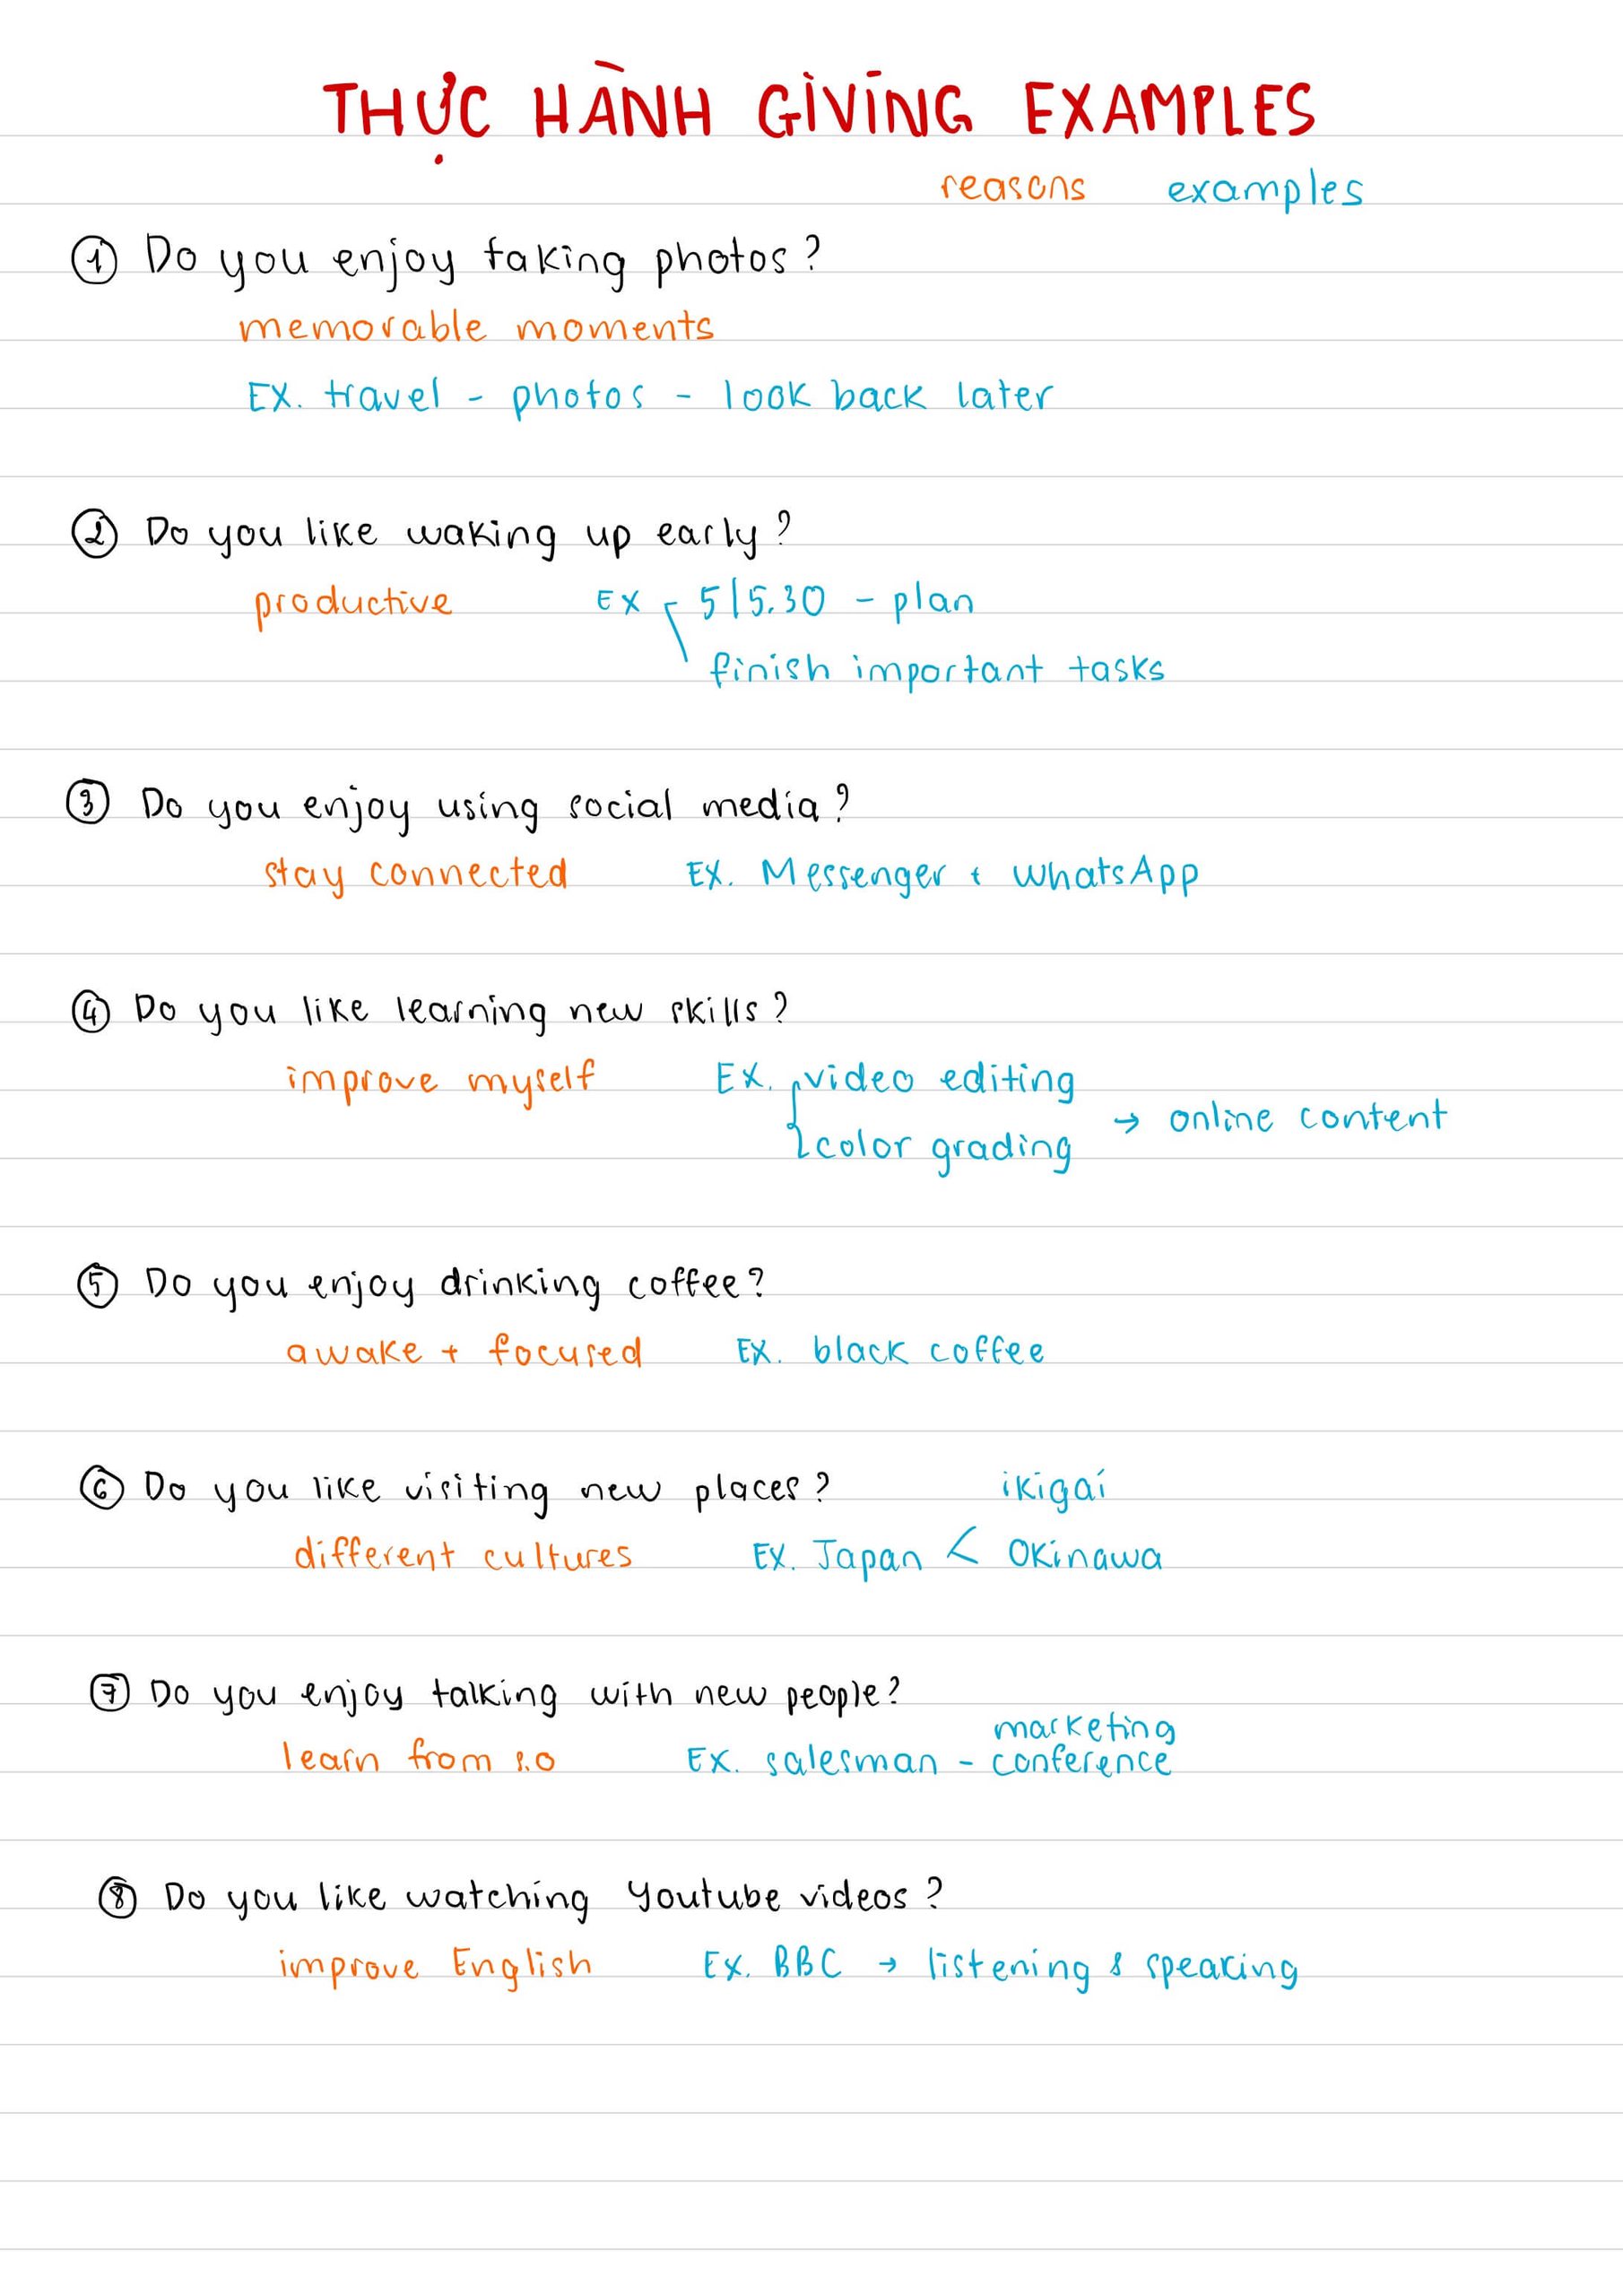 THỰC HÀNH GIVING EXAMPLES
reasons examples
① Do you enjoy taking photos?
memorable moments
EX. travel - photos - look back later
② Do you like waking up early?
productive EX 5/5.30 - plan
finish important tasks
③ Do you enjoy using social media?
stay connected EX. Messenger + WhatsApp
④ Do you like learning new skills?
improve myself EX. video editing
→ online content
color grading
⑤ Do you enjoy drinking coffee?
awake + focused EX. black coffee
⑥ Do you like visiting new places? ikigai
different cultures EX. Japan < Okinawa
⑦ Do you enjoy talking with new people?
marketing
learn from s.o EX. salesman - conference
⑧ Do you like watching Youtube videos?
improve English EX. BBC → listening & speaking